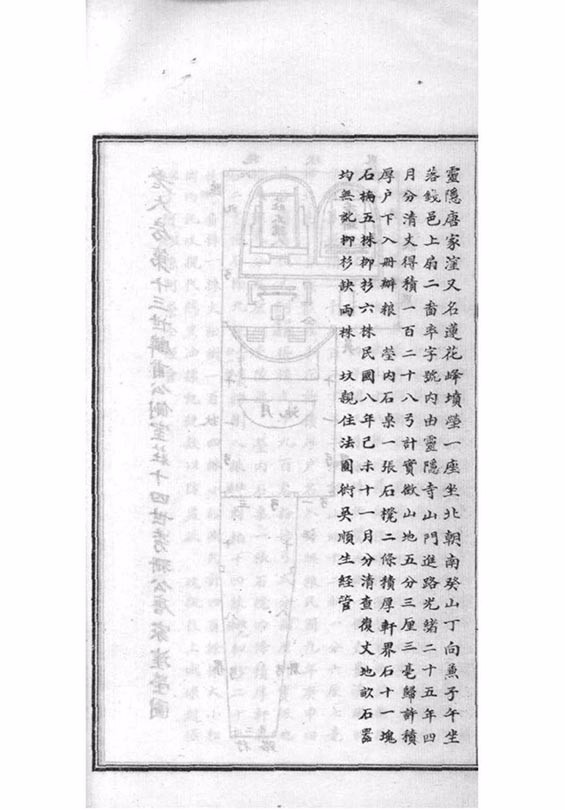 靈隱唐家溼又名蓮花峰墳塋一座坐北朝南癸山丁向兼子午坐
落錢邑上扇二啚率字號內由靈隱寺山門進路光緒二十五年四
月分清丈得積一百二十八弓計實徵山地五分三厘三毫歸許積
厚户下入冊辦粮 塋內石桌一張石櫈二條積厚軒界石十一塊
石椅五株柳杉六株民國八年己未十一月分清查復丈地畝石器
均無訛柳杉缺兩株 坟親住法圓衖吳順生經管